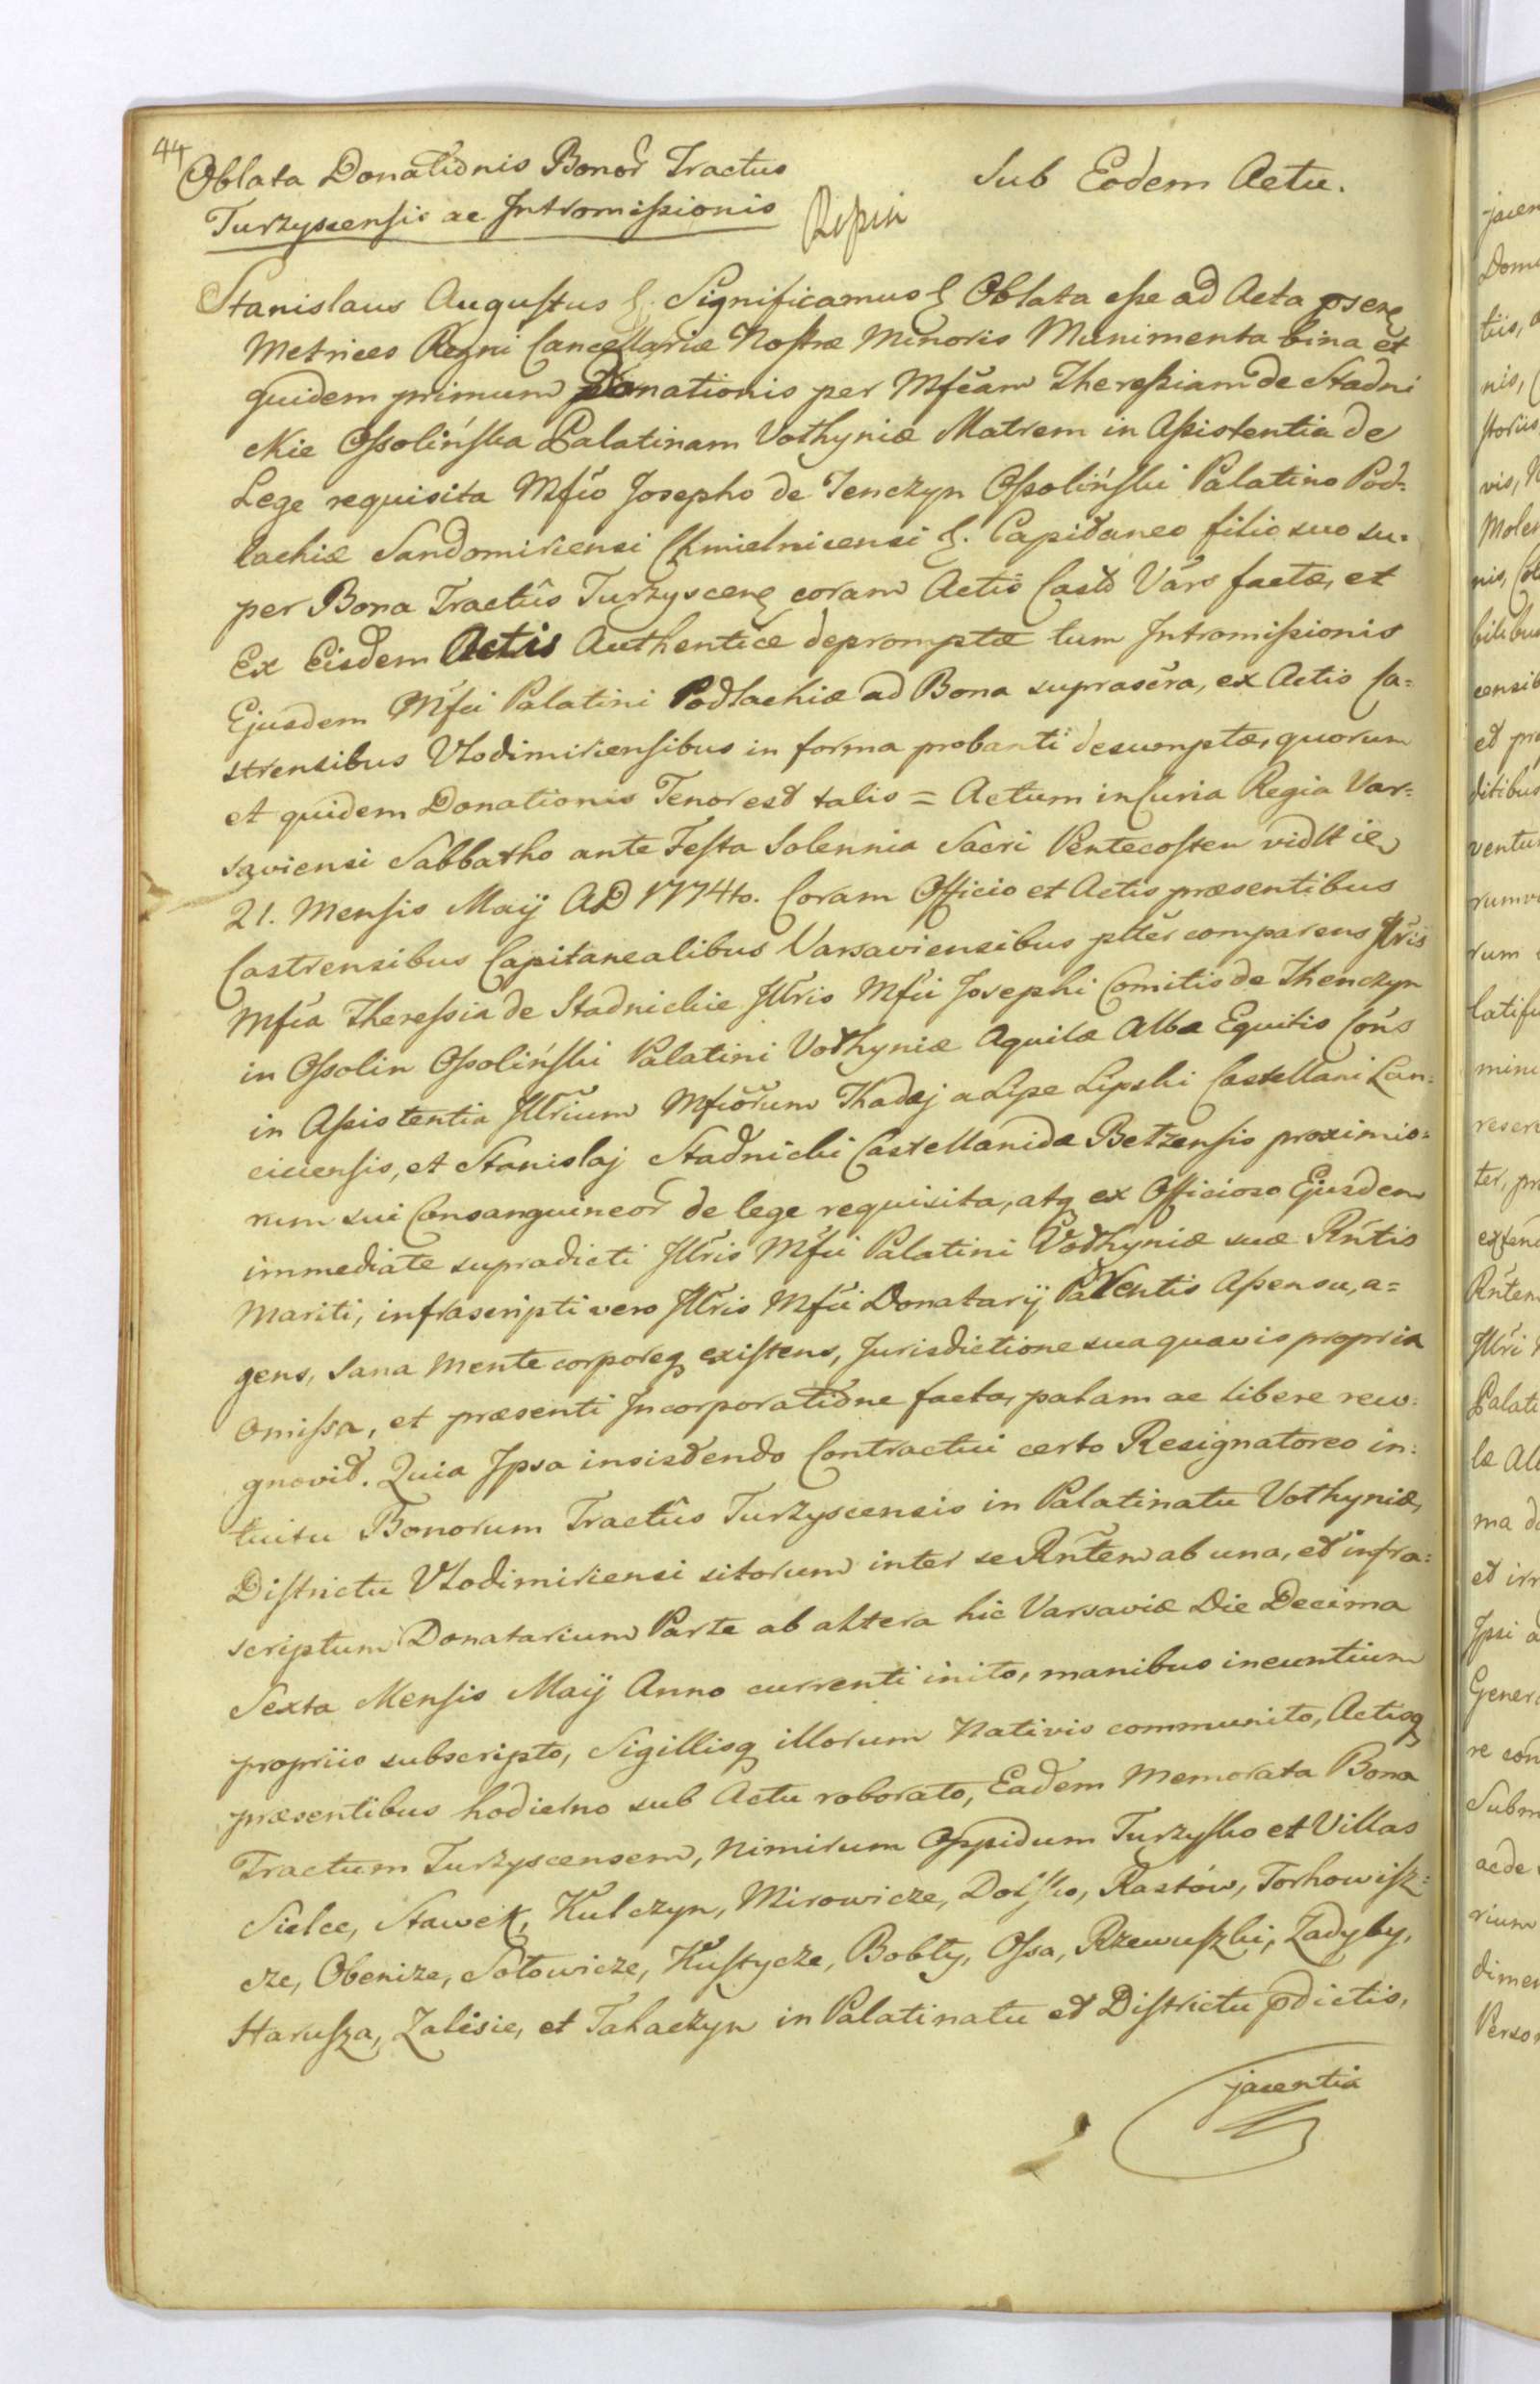 44
Oblata Donatiõnis Bonor̃ Tractus
Turzyscensis ac Intromissionis
Sub Eodem Actu.
Stanislaus Augustus &. Significamus & Oblata esse ad Acta
Metrices Regni Cancellariæ Nostræ Minoris Munimenta bina et
quidem primum Donationis per Mfčam Theressiam de Stadni
ckie Ossolińska Palatinam Volhyniæ Matrem in Assistentia de
Lege requisita Mfčo Josepho de Tenczyn Ossoliński Palatino Pod-
lachiæ Sandomiriensi Chmielnicensi &. Capitaneo filio suo su-
per Bona Tractûs Turzyscenś coram Actis Castr Vars factæ, et
Ex Eisdem Actis Authentice depromptæ tum Intromissionis
Ejusdem Mfci Palatini Podlachiæ ad Bona suprascr̃a, ex Actis Ca=
strensibus Vlodimiriensibus in forma probanti desumptæ, quorum
et quidem Donationis Tenor est talis = Actum in Curia Regia Var=
saviensi Sabbatho ante Festa Solennia Sacri Pentecosten vidlt ie
21. Mensis Maij AD 1774to. Coram Officio et Actis præsentibus
Castrensibus Capitanealibus Varsaviensibus plter comparens Illris
Mfca Theressia de Stadnickie Illris Mfci Josephi Comitis de Thenczyn
in Ossolin Ossoliński Palatini Volhyniæ Aquilæ Albæ Equitis Cons
in Assistentia Illrium Mfcorum Thadæj a Lipe Lipski Castellani Lan=
ciciensis, et Stanislaj Stadnicki Castellanidæ Betzensis proximio=
rum sui Consanguineor̃ de lege requisita, atq ex Officioso Ejusdem
immediate supradicti Illris Mfci Palatini Volhyniæ suæ Rñtis
Mariti, infrascripti vero Illris Mfci Donatarij Parentis Assensu, a=
gens, Sana Mente corporeq existens, Jurisdictione sua quavis propria
omissa, et præsenti Incorporatiõne facta, palam ac libere reco-
gnovit. Quia Ipsa insistendo Contractui certo Resignatoreo in:
tuitu Bonorum Tractûs Turzyscensis in Palatinatu Volhyniæ,
Districtu Vlodimiriensi sitorum inter se Rñtem ab una, et infra:
scriptum Donatarium Parte ab altera hic Varsaviæ Die Decima
Sexta Mensis Maij Anno currenti inito, manibus ineuntium
propriis subscripto, Sigillisq illorum Nativis communito, Actisq
præsentibus hodierno sub Actu roborato, Eadem Memorata Bona
Tractum Turzyscensem, Nimirum Oppidum Turzysko et Villas
Sielce, Stawek, Kulczyn, Mirowicze, Dolsko, Rastów, Torhowisz:
cze, Obenize, Sołowicze, Kustycze, Bobły, Ossa, Rzewuszki, Zadyby,
Harusza, Zalisie, et Tahaczyn in Palatinatu et Districtu p̃dictis,
jacentia